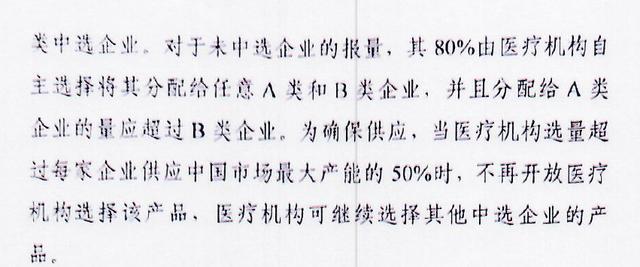 类中选企业。对于未中选企业的报量，其 80%由医疗机构自
主选择将其分配给任意 A 类和 B 类企业，并且分配给 A 类
企业的量应超过 B 类企业。为确保供应，当医疗机构选量超
过每家企业供应中国市场最大产能的 50%时，不再开放医疗
机构选择该产品，医疗机构可继续选择其他中选企业的产
品。